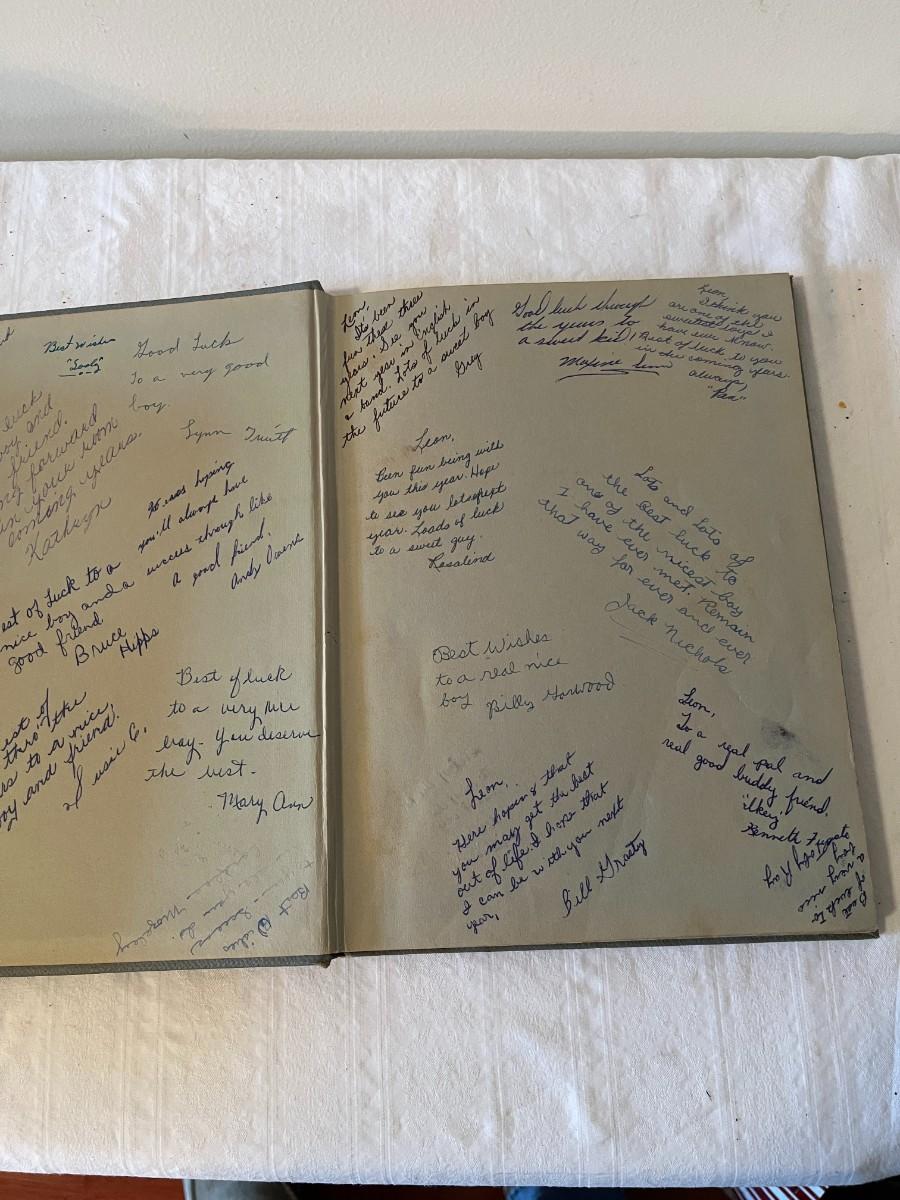 Best Wishes
"Sooty"
Good Luck
To a very good
boy.
Lynn Truitt
luck
boy and
friend.
ng forward
in your room
coming years.
Kathryn
hoping
you'll always have
success through life
a good friend,
Andy
est of Luck to a
nice boy and a
good friend.
Bruce Hipps
est of
thro' the
rs to a nice
boy and friend.
Susie C.
Best of luck
to a very nice
boy. You deserve
the best.
Mary Ann
Best Wishes
Leon,
It's been
fun these three
years. See you
next year in English
& band. Lots of luck in
the future to a sweet boy
Guy
Good luck through
the years to
a sweet kid!
Maxine
Leon,
I think you
are one of the
sweetest boys I
have ever known.
Best of luck to you
in the coming years.
always,
Leon,
Been fun being with
you this year. Hope
to see you lots next
year. Loads of luck
to a sweet guy.
Rosalind
Lots and lots of
the Best luck to
one of the nicest boy
I have ever met. Remain
that way for ever and ever
Jack Nichols
Best Wishes
to a real nice
boy Billy Harwood
Leon,
To a real pal and
real good buddy friend.
Kenneth
Leon,
Here hoping that
you may get the best
out of life. I hope that
I can be with you next
year,
Bill Grasty
Best
of luck to
a very nice
boy
Ray